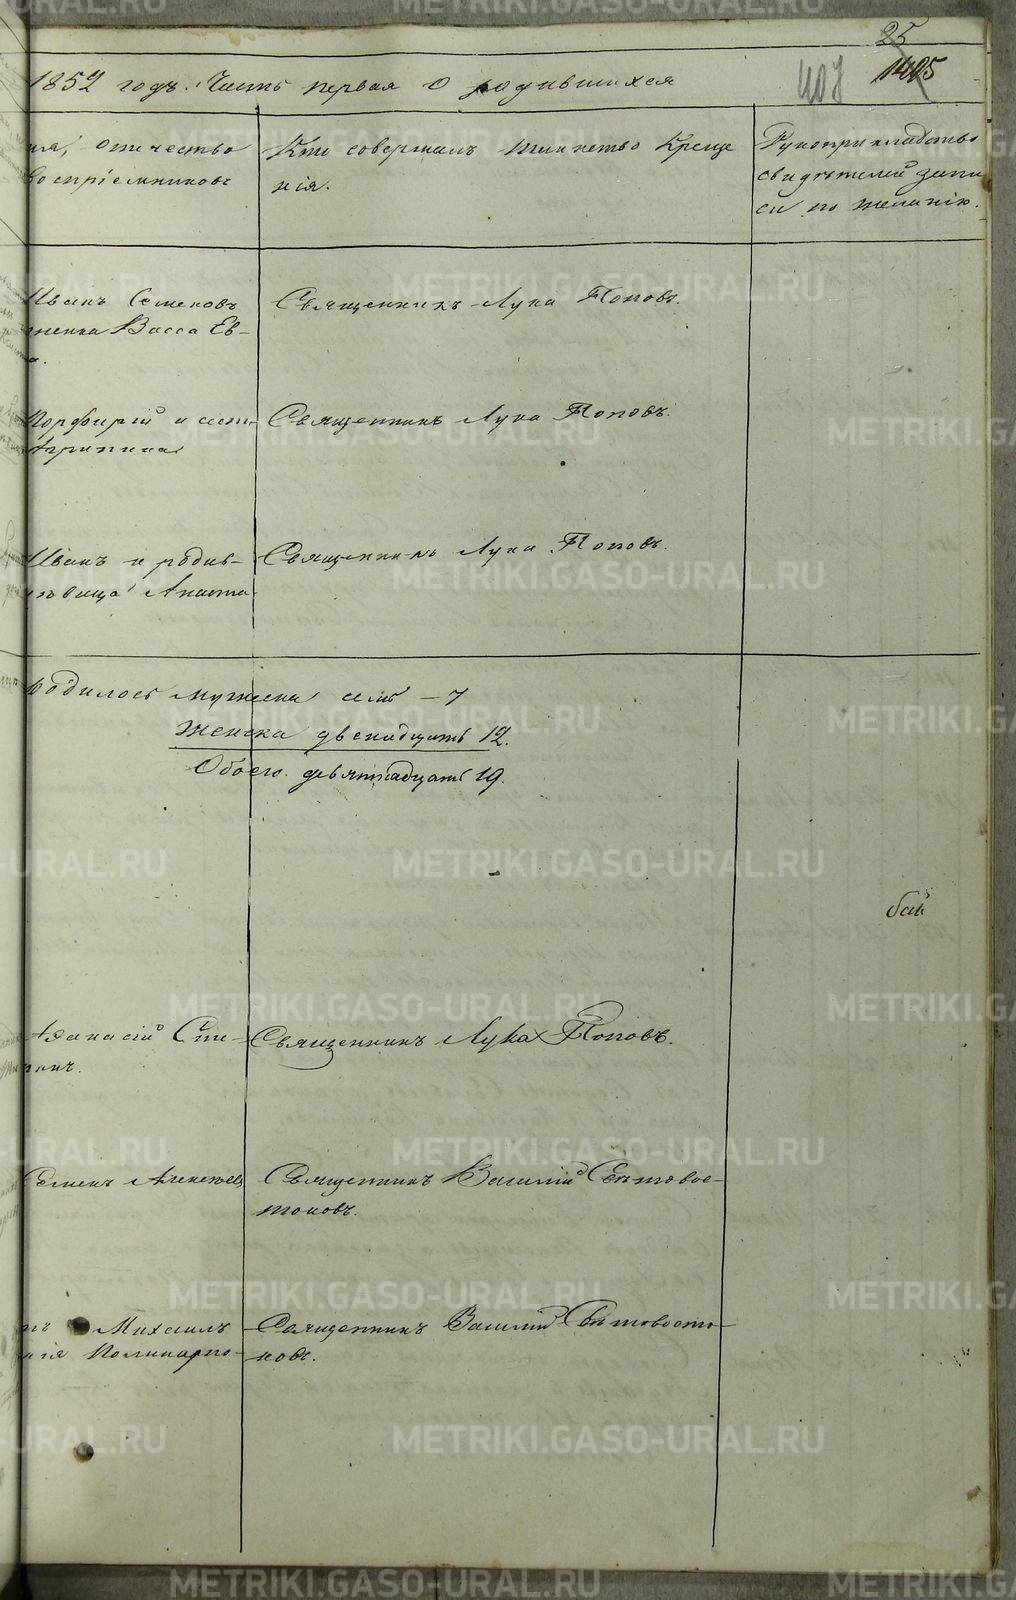 25
1405
407
1852 годъ. Часть первая о родившихся
имя, отечество
воспріемниковъ
Кто совершалъ таинство Креще
нія.
Рукоприкладство
свидѣтелей запи
си по желанію.
Иванъ Семеновъ
женка Васса Ев-
а.
Священникъ Лука Поповъ.
Порфирій и сест-
Агрипина
Священникъ Лука Поповъ.
Иванъ и родив-
дѣвица Анаста
Священникъ Лука Поповъ.
родилось мужеска семь – 7
Женска двенадцать 12.
Обоего девятнадцать 19.
Аѳанасій Сте-
Священникъ Лука Поповъ.
Семенъ Алексѣев
Священникъ Василій Свѣтовос-
токовъ.
Михаилъ
Поликарпо-
Священникъ Василій Свѣтовосто-
ковъ.
METRIKI.GASO-URAL.RU